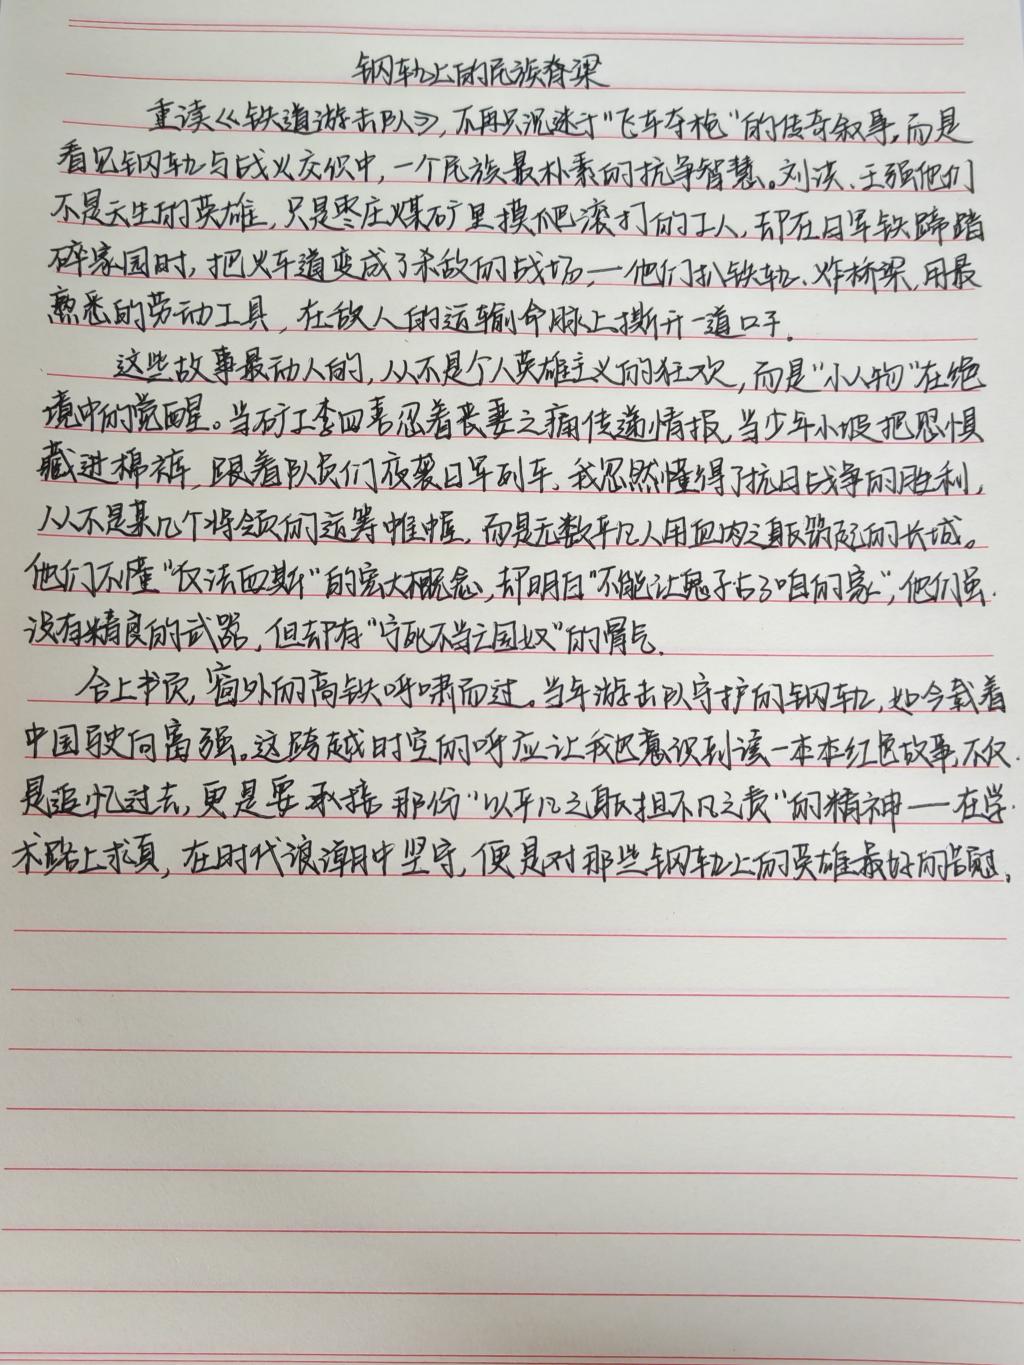 钢轨上的民族脊梁
重读《铁道游击队》,不再只沉迷于“飞车夺枪”的传奇叙事,而是
看见钢轨与战火交织中,一个民族最朴素的抗争智慧。刘洪、王强他们
不是天生的英雄,只是枣庄煤矿里摸爬滚打的工人,却在日军铁蹄踏
碎家园时,把火车道变成了杀敌的战场—他们扒铁轨、炸桥梁,用最
熟悉的劳动工具,在敌人的运输命脉上撕开一道口子.
这些故事最动人的,从不是个人英雄主义的狂欢,而是“小人物”在绝
境中的觉醒。当矿工李四喜忍着丧妻之痛传递情报,当少年小坡把恐惧
藏进棉裤,跟着队员们夜袭日军列车,我忽然懂得了抗日战争的胜利,
从不是某几个将领的运筹帷幄,而是无数平凡人用血肉之躯筑起的长城。
他们不懂“反法西斯”的宏大概念,却明白“不能让鬼子占了咱的家”,他们虽
没有精良的武器,但却有“宁死不当亡国奴”的骨气.
合上书页,窗外的高铁呼啸而过。当年游击队守护的钢轨,如今载着
中国驶向富强。这跨越时空的呼应让我也意识到读一本本红色故事,不仅
是追忆过去,更是要承接那份“以平凡之躯担不凡之责”的精神——在学
术路上求真,在时代浪潮中坚守,便是对那些钢轨上的英雄最好的告慰。